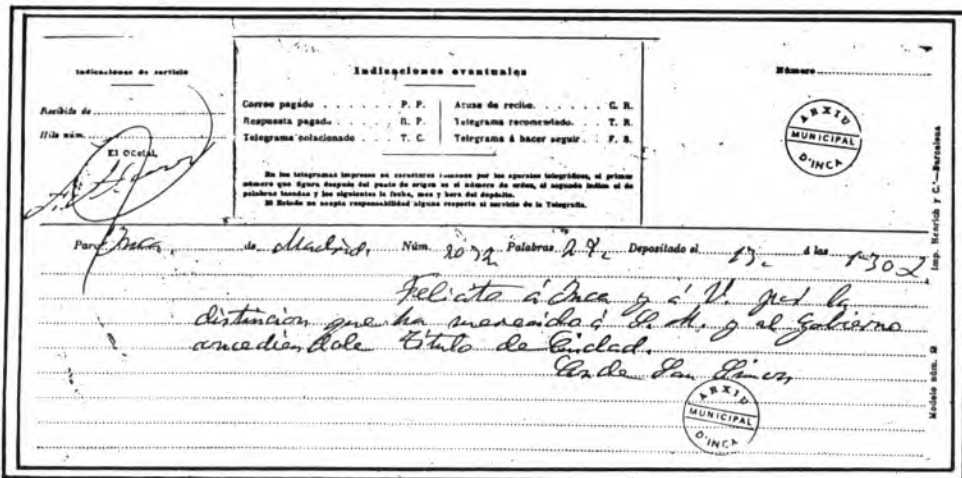 Indicaciones de servicio
Recibido de
Hilo núm.
El Oficial,
Indicaciones eventuales
Correo pagado . . . . . . P. P.
Respuesta pagada . . . . R. P.
Telegrama colacionado . . T. C.
Acuse de recibo. . . . . . C. R.
Telegrama recomendado. . T. R.
Telegrama á hacer seguir. . F. S.
En los telegramas impresos en caracteres romanos por los aparatos telegráficos, el primer
número que figura después del punto de origen es el número de orden, el segundo indica el de
palabras tasadas y los siguientes la fecha, mes y hora del depósito.
El Estado no acepta responsabilidad alguna respecto al servicio de la Telegrafía.
Número
ARXIU
MUNICIPAL
D'INCA
Para Inca, de Madrid, Núm. Palabras Depositado el 13 á las
Felicito á Inca y á V. por la
distincion que ha merecido á S. M. y al Gobierno
concediendole Título de Ciudad.
Conde San Simon
ARXIU
MUNICIPAL
D'INCA
Imp. Henrich y C.ª—Barcelona
Modelo núm.